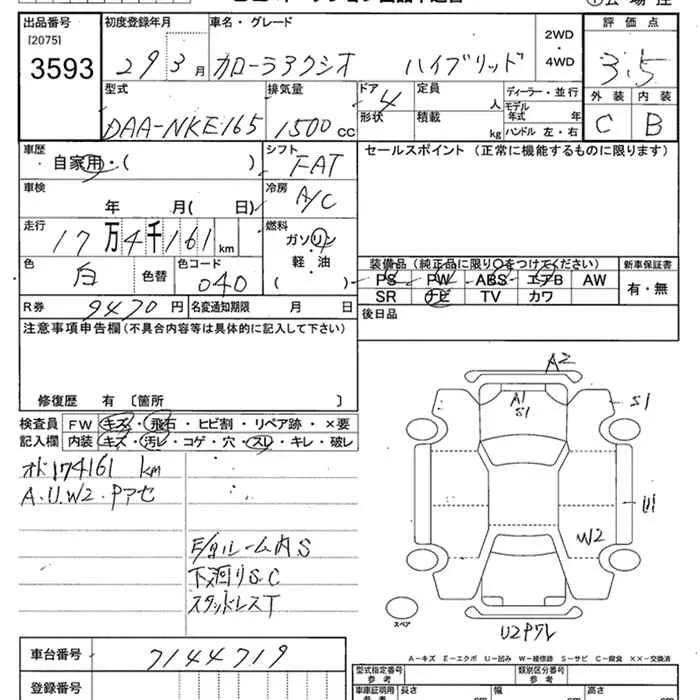 出品番号 初度登録年月 車名・グレード 2WD ・ 4WD 評価点
[2075]
3593 29 3月 カローラアクシオ ハイブリッド 3.5
型式 排気量 ドア 4 定員 人 ディーラー・並行 外装 内装
DAA-NKE165 1500 CC 形状 積載 kg モデル年式 年 ハンドル 左・右 C B
車歴 シフト セールスポイント (正常に機能するものに限ります)
自家用・( ) FAT
車検 冷房
年 月( 日) A/C
走行 燃料
17万4千161km ガソリン
軽・油
( )
色 白 色替 色コード 040
装備品 (純正品に限り○をつけてください) 新車保証書
PS PW ABS エアB AW 有・無
SR ナビ TV カワ
R券 9470円 名変通知期限 月 日
後日品
注意事項申告欄(不具合内容等は具体的に記入して下さい)
修復歴 有 〔箇所 〕
検査員 FW キズ・飛石・ヒビ割・リペア跡・×要
記入欄 内装 キズ・汚レ・コゲ・穴・スレ・キレ・破レ
オド174161 km
A.U.W2.Pアセ
E/gルーム内S
下廻りS.C
スタッドレスT
A2
A1
S1
S1
U1
W2
スペア
U2Pワレ
A−キズ E−エクボ U−凹み W−補修跡 S−サビ C−腐食 ××−交換済
車台番号 7144719
登録番号
型式指定番号 参考 類別区分番号 参考
車庫証明用 参考 長さ cm 幅 cm 高さ cm